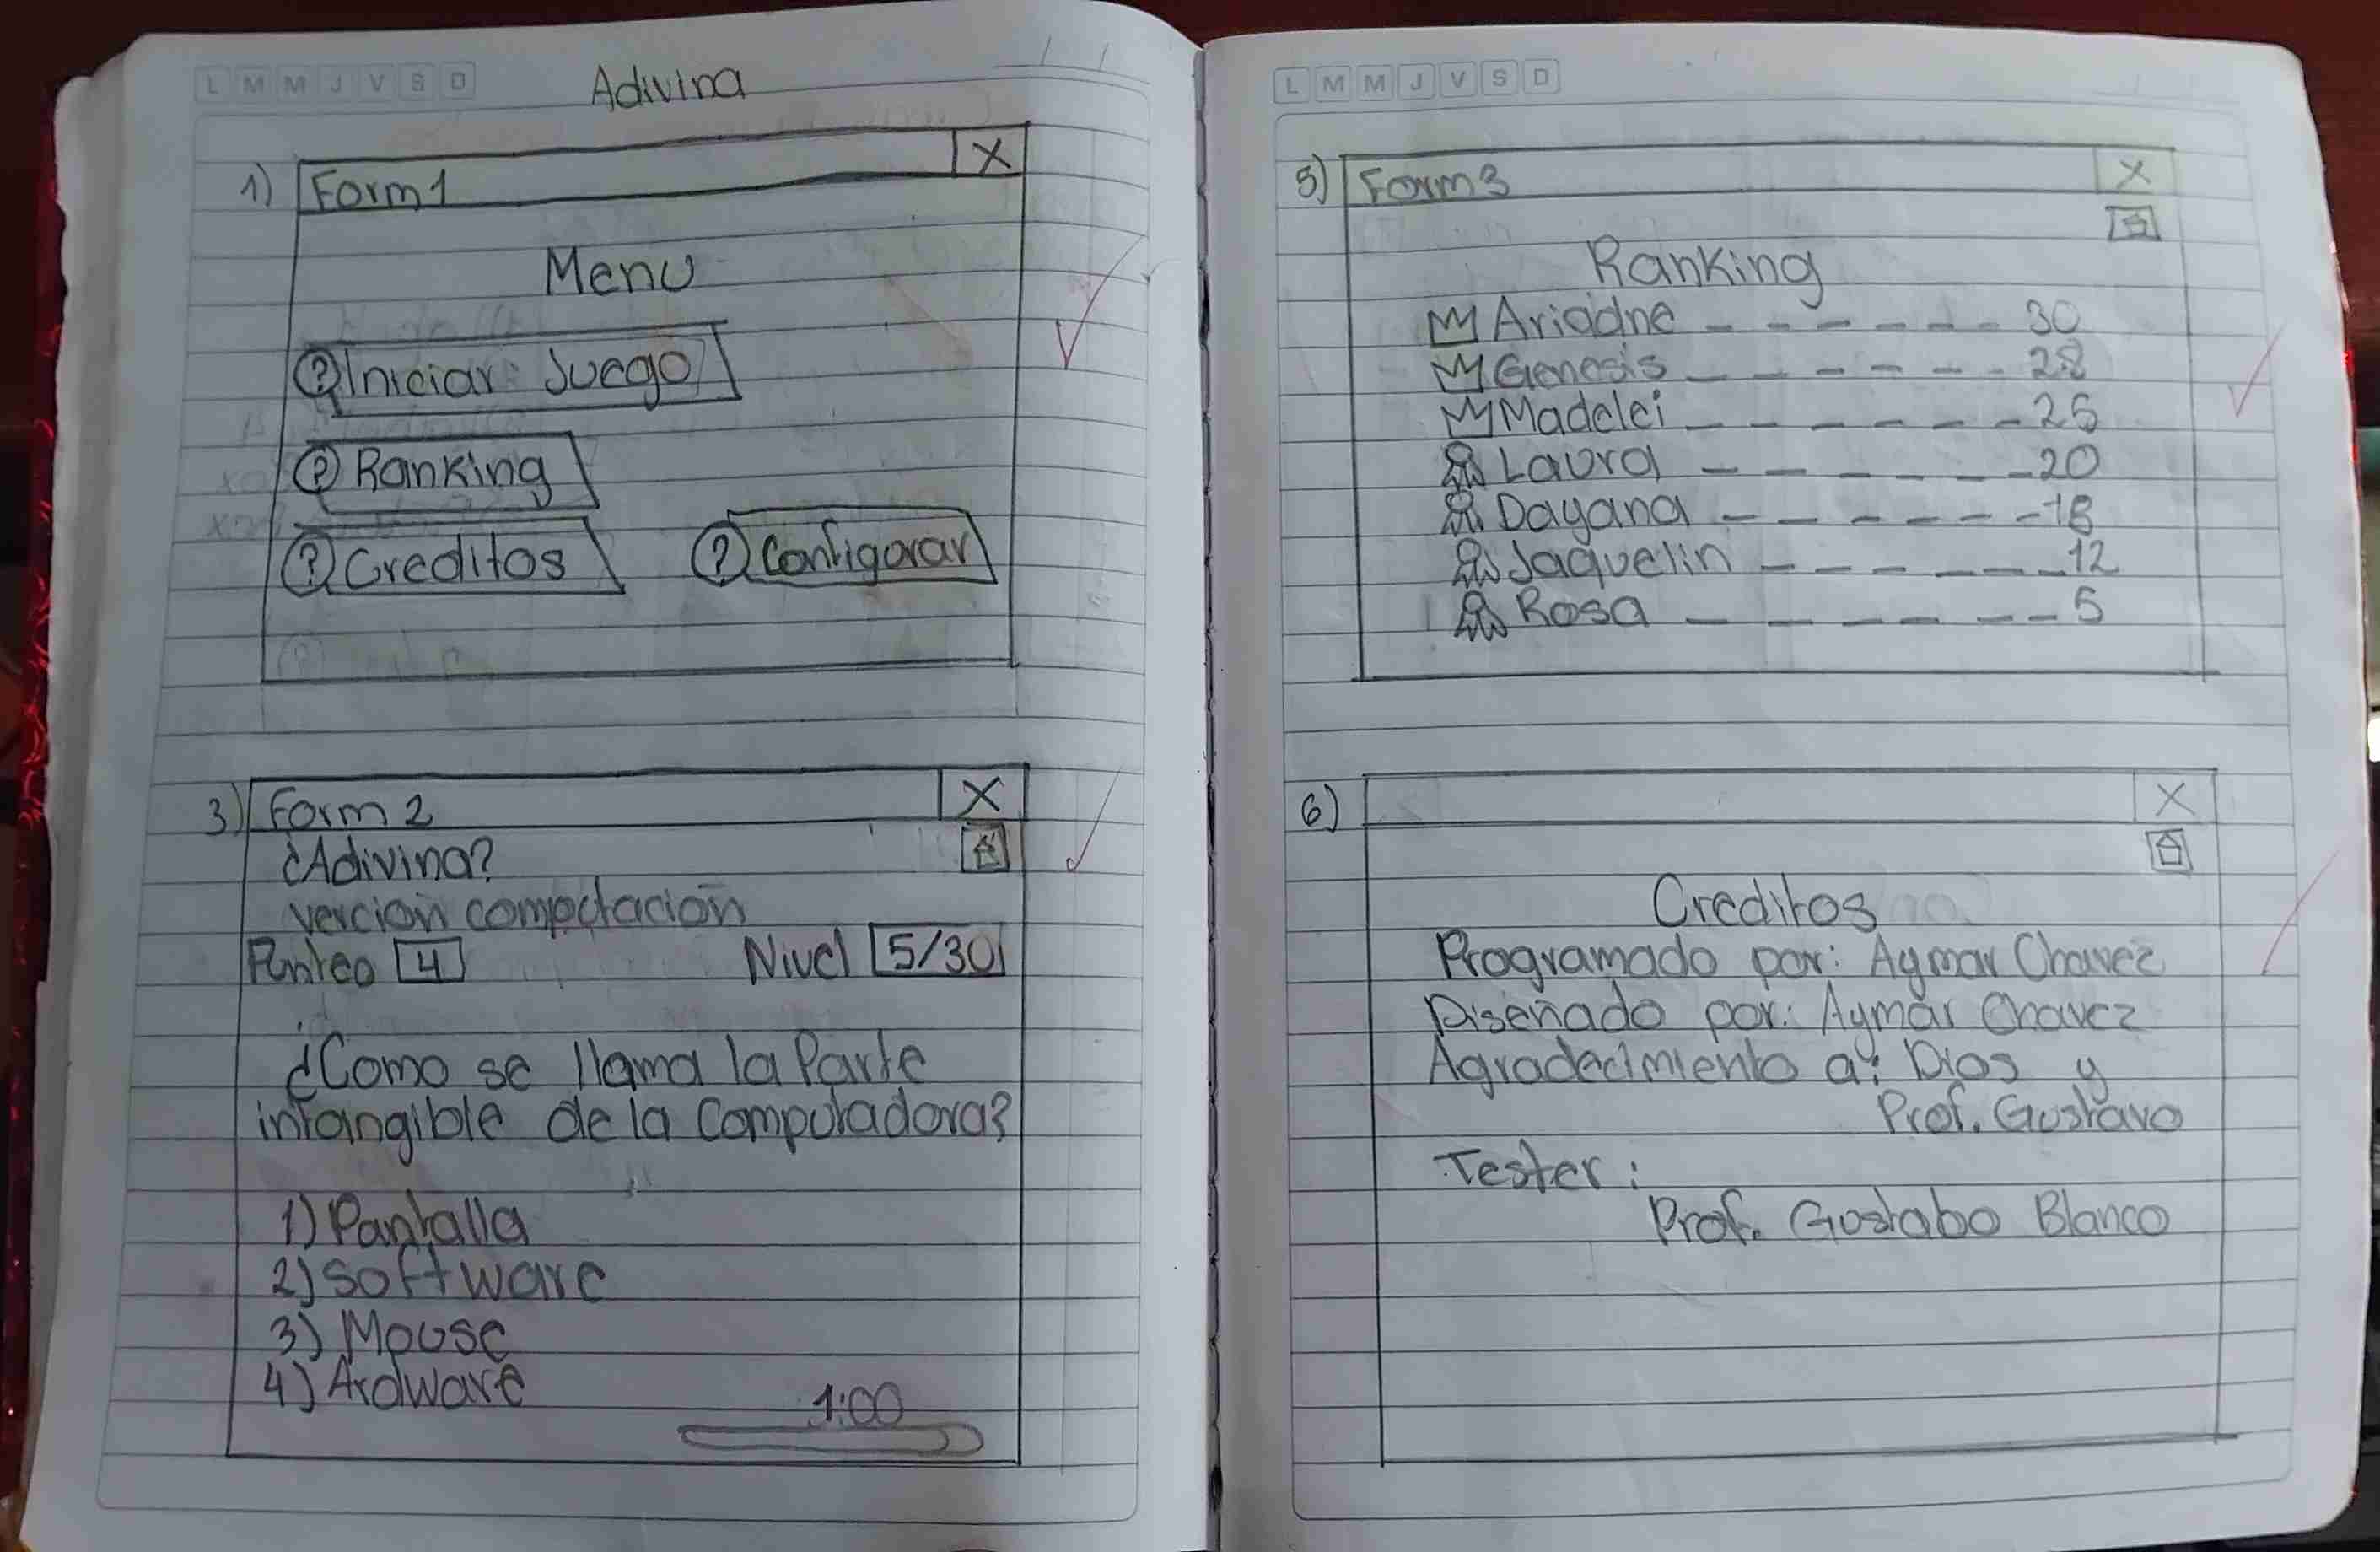 L M M J V S D
Adivina
1) Form 1 X
Menu
? Iniciar Juego
? Ranking
? Creditos ? Configorar
3) Form 2 X
¿Adivina?
vercion computacion
Punteo 4 Nivel 5/30
¿Como se llama la Parte
intangible de la Computadora?
1) Pantalla
2) Software
3) Mouse
4) Ardware
1:00
L M M J V S D
5) Form 3 X
Ranking
Ariadne - - - - - - 30
Genesis - - - - - - 28
Madelei - - - - - - - 25
Laura - - - - - - 20
Dayana - - - - - - - 18
Jaquelin - - - - - - - 12
Rosa - - - - - - - 5
6) X
Creditos
Programado por: Aymar Chavez
Diseñado por: Aymar Chavez
Agradecimiento a: Dios y
Prof. Gustavo
Tester:
Prof. Gustabo Blanco